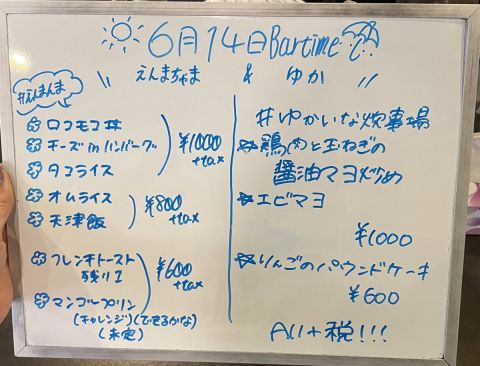 6月14日Bartime
\\ えんまちゃま & ゆか //
#えんまんま
ロコモコ丼
チーズinハンバーグ
タコライス
¥1000
+tax
オムライス
天津飯
¥800
+tax
フレンチトースト
残り1
マンゴープリン
(チャレンジ)(できるかな)
(未定)
¥600
+tax
#ゆかいな炊事場
鶏肉と玉ねぎの
醤油マヨ炒め
エビマヨ
¥1000
りんごのパウンドケーキ
¥600
All+税!!!